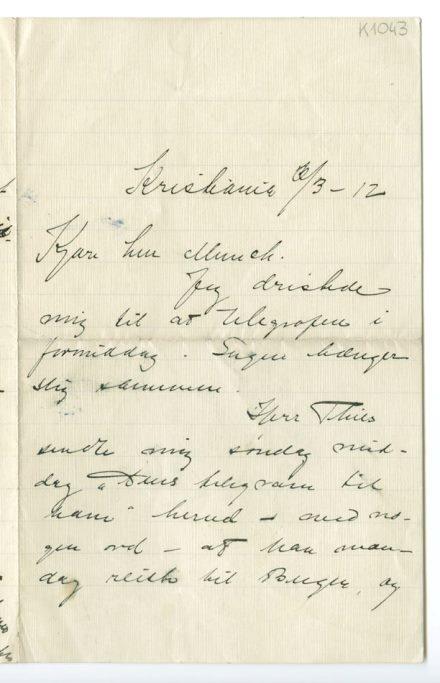 K1043
Kristiania /3-12
Kjære herr Munch.
Jeg dristede
mig til at telegrafere i
formiddag. Sagen hænger
slig sammen.
Herr Thiis
sendte mig søndag mid-
dag "Deres telegram til
ham" herud - med no-
gen ord - at han man-
dag reiste til Bergen, og